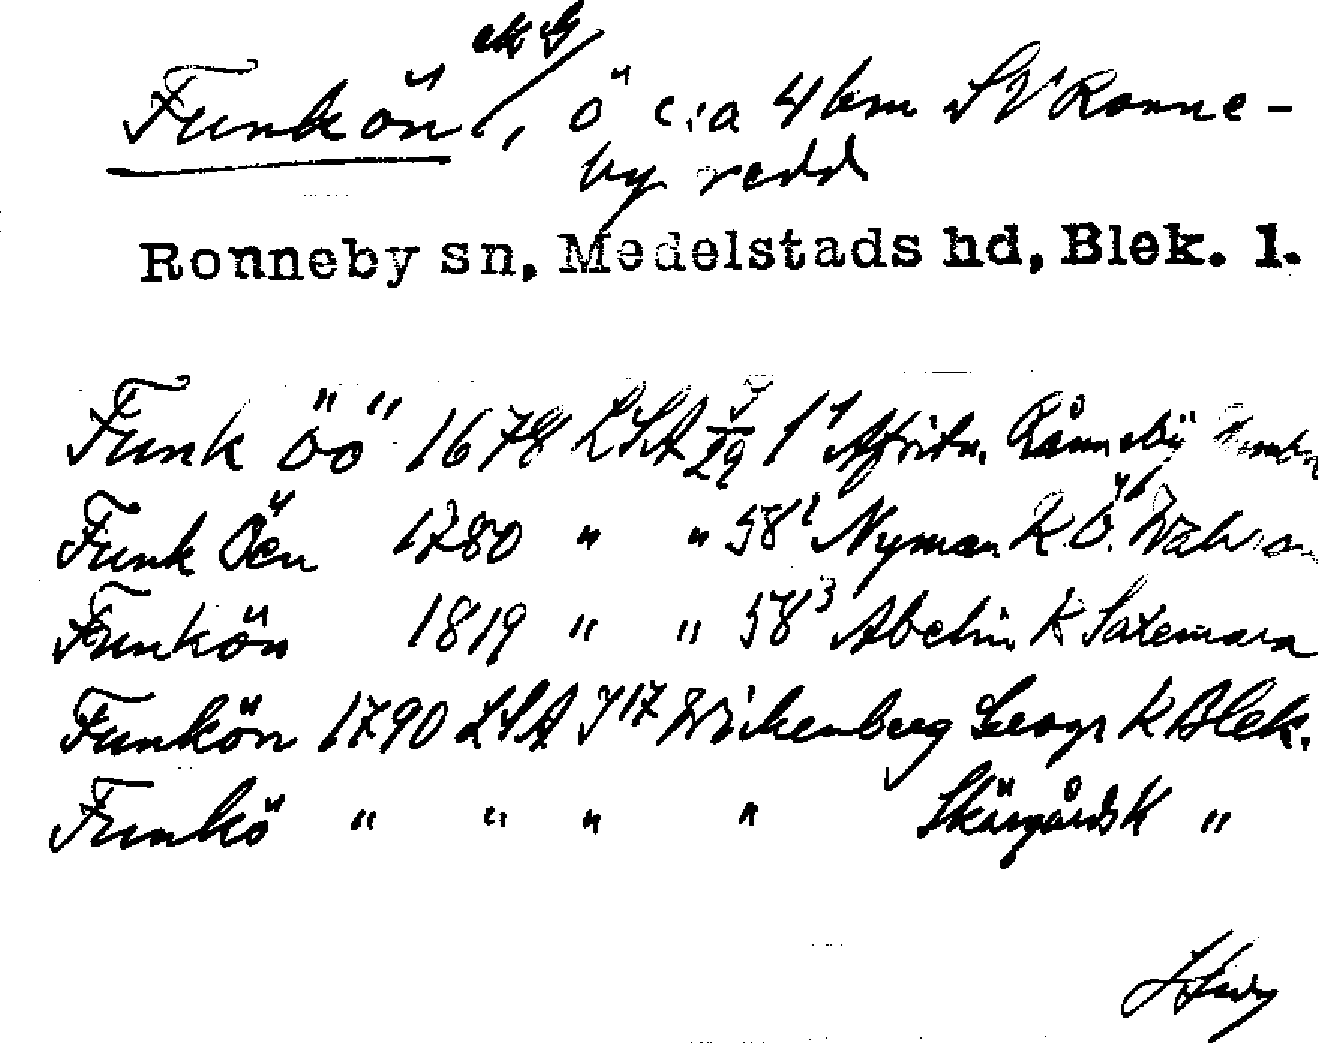 ek G
Funkön, ö c:a 4 km SV Ronne-
by redd
Ronneby sn, Medelstads hd, Blek. l.
Funk Öö 1678 LSA J/29 1¹ Afritn. Rånneby
Funk Öen 1780 " " 58² Nyman K Ö.
Funkön 1819 " " 58³ Abelin K Saxemara
Funkön 1790 LSA J 17 Wickenberg Geogr K Blek.
Funkö " " " " Skärgårds K "